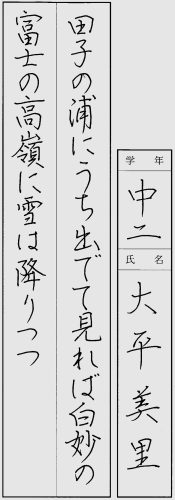 田子の浦にうち出でて見れば白妙の
富士の高嶺に雪は降りつつ
学年
中二
氏名
大平美里